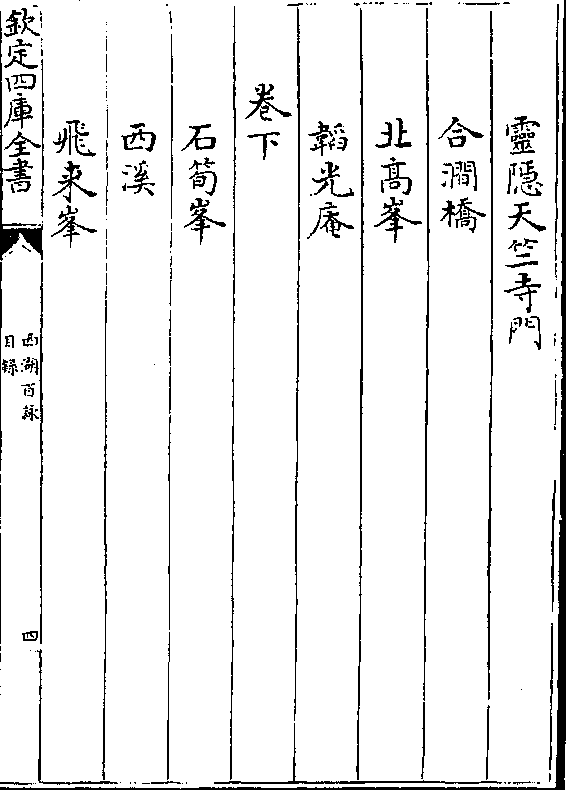 靈隱天竺寺門
合澗橋
北髙峯
韜光庵
卷下
石筍峯
西溪
飛来峯
欽定四庫全書
西湖百詠
目錄
四